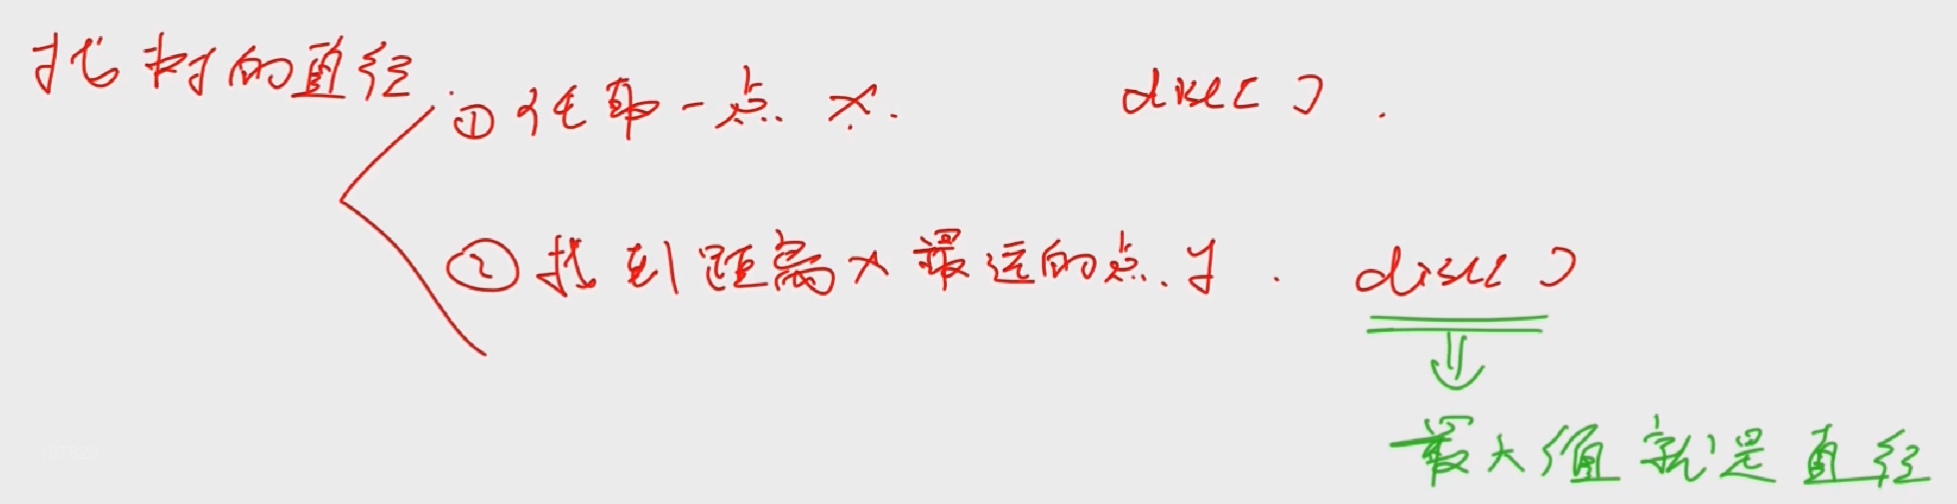 找树的直径
① 任取一点 x. dist[ ] .
② 找到距离 x 最远的点 y . dist[ ]
最大值就是直径